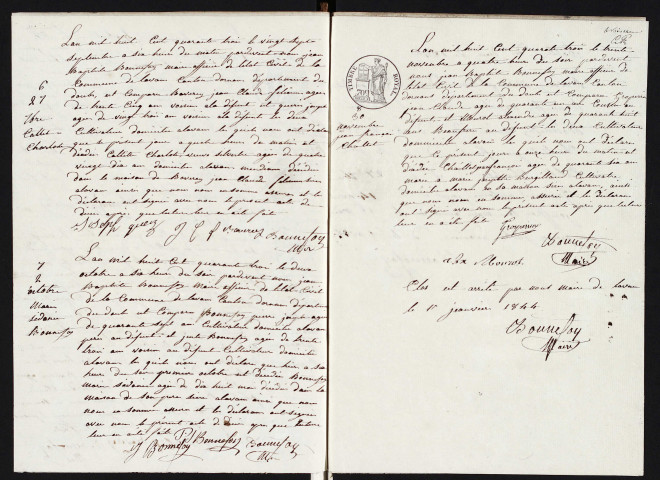 6
27
7bre
Callet
Charlote
Lan mil huit Cent quarante trois le vingt sept
septembre a six heure du matin pardevant nous jean
Baptiste Bonnefoy Maire officier de létat Civil de la
Commune de lavan Canton dornan département du
doubs, est Comparu Bavrey jean Claude
age
de trente Cinq an voisin du défunt et
age de vingt trois an voisin du défunt le deux
Cultivateur domicilié alavan le quels nous ont déclaré
que le présent jour a quatre heure du matin est
décédée Callet Charlote veuve silvestre agee de quatre
vingt dix an domicilie alavan
décédée
dans la maison de Bavrey jean Claude
alavan ainsi que nous nous en somme assuré et les
déclarant ont signé avec nous le présent acte de
décès après que lecture leur en a été fait
J C f Bavrey Bonnefoy
Maire
7
2
octobre
Marie
sidonie
Bonnefoy
Lan mil huit Cent quarante trois le deux
octobre a six heure du soir pardevant nous jean
Baptiste Bonnefoy Maire officier de létat Civil
de la Commune de lavan Canton dornan département
du doubs est Comparu Bonnefoy pierre joseph age
de quarante sept an Cultivateur domicilié alavan
père au défunt et juste Bonnefoy age de trente
trois an voisin au défunt Cultivateur domicilié
alavan le quels nous ont déclaré que hier a six
heure du soir premier octobre est décédée Bonnefoy
Marie sidonie age de dix huit mois décédée dans la
maison de son père sise alavan ainsi que nous
nous en somme assuré et les déclarant ont signé
avec nous le présent acte de décès après que lecture
leur en a été fait
J Bonnefoy P J Bonnefoy Bonnefoy
Maire
TIMBRE ROYAL
8
30
novembre
jean françois
Challet
Lan mil huit Cent quarante trois le trente
novembre a quatre heure du soir pardevant
nous jean Baptiste Bonnefoy Maire officier de
létat Civil de la Commune de lavan Canton
dornan département du doubs est Comparu
Claude age de quarante un an Cousin au
défunt et Mourot alexandre age de quarante huit
ans Beaufrère au défunt le deux Cultivateur
domicilié alavan le quels nous ont déclaré
que le présent jour a onze heure du matin est
décédé Challet jean françois age de quarante six an
marie a marie josephte
Cultivateur
domicilie alavan en sa maison sise alavan, ainsi
que nous nous en somme assuré et les déclarant
ont signé avec nous le présent acte après que lecture
leur en a été fait
Bonnefoy
Maire
alex Mourot
Clos et arrêté par nous maire de lavan
le 1er janvier 1844
Bonnefoy
Maire